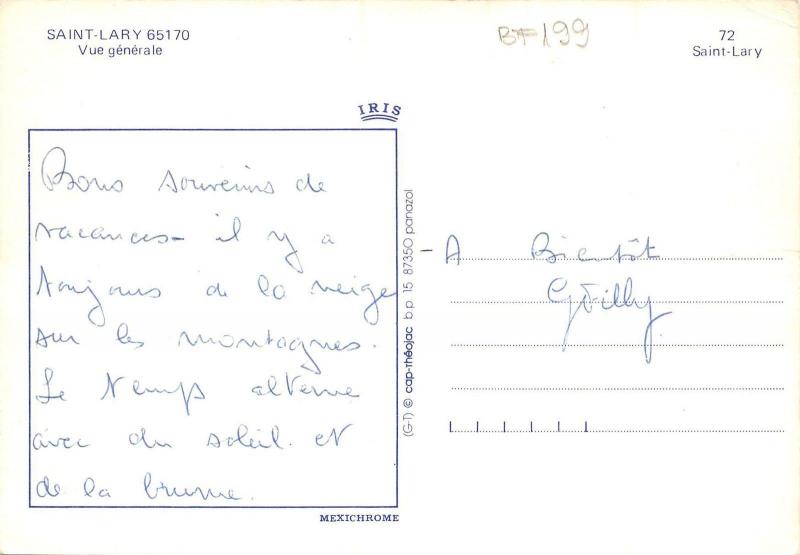 SAINT-LARY 65170
Vue générale
BF199
72
Saint-Lary
IRIS
Bons souvenirs de
vacances - il y a
toujours de la neige
sur les montagnes.
Le temps alterne
avec du soleil. et
de la brume.
MEXICHROME
(G-1) © cap-théojac b.p. 15 87350 panazol
A Bientôt